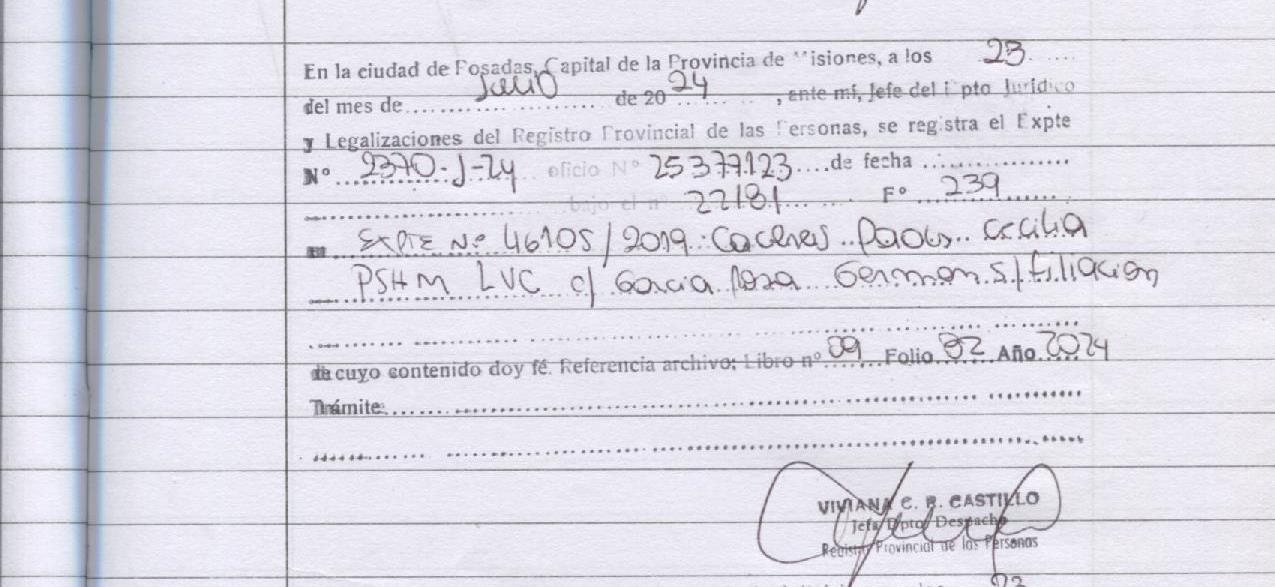 En la ciudad de Posadas, Capital de la Provincia de Misiones, a los 23
del mes de Julio de 2024, ante mí, Jefe del Dpto Jurídico
y Legalizaciones del Registro Provincial de las Personas, se registra el Expte
Nº 2370-J-24 oficio Nº 25377.123 de fecha
bajo el nº 22181 Fº 239
EXPTE Nº 46105/2019 Caceres Paola Cecilia
PSHM LVC c/ Garcia German S/ filiacion
de cuyo contenido doy fé. Referencia archivo: Libro nº 09 Folio 92 Año 2024
Trámite
VIVIANA C. R. CASTILLO
Jefa Dpto. Despacho
Registro Provincial de las Personas